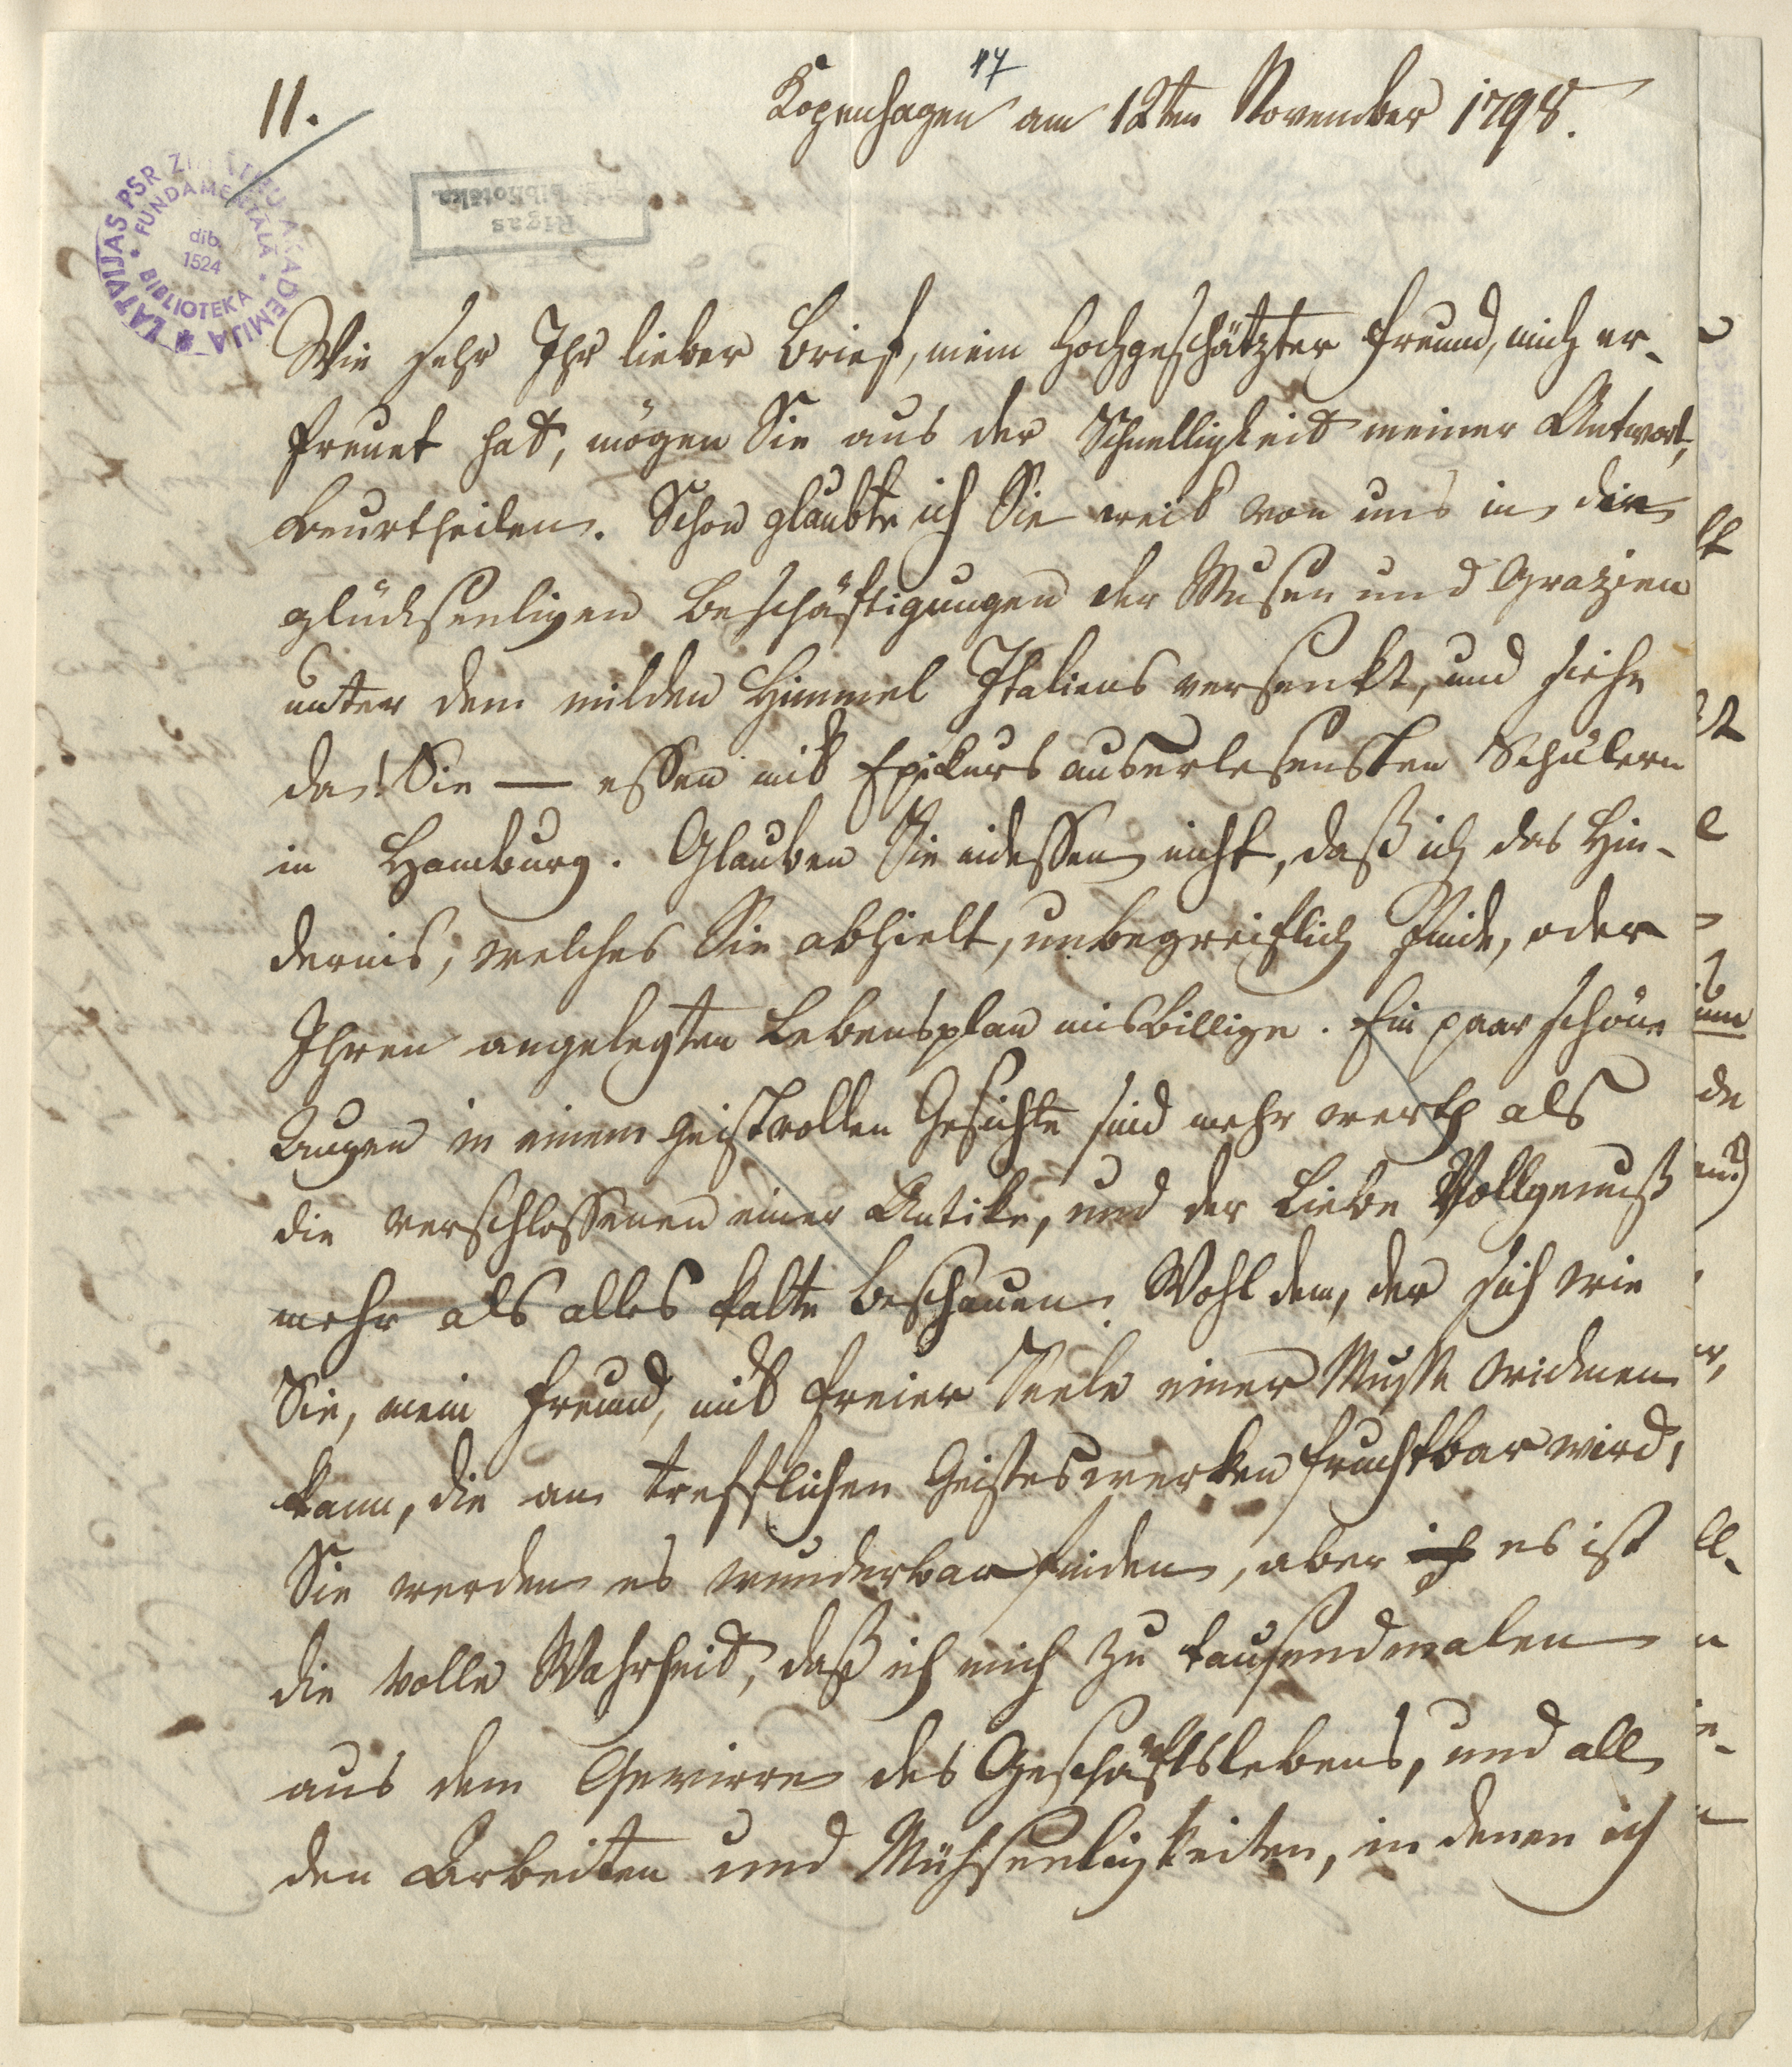 11.
17
Kopenhagen am 12ten November 1798.
LATVIJAS PSR ZINĀTŅU AKADEMIJA
FUNDAMENTALĀ BIBLIOTEKA
dib.
1524
Rigas
bibliotēka.
Wie sehr Ihr lieber Brief, mein hochgeschätzter Freund, mich er-
freuet hat, mögen Sie aus der Schnelligkeit meiner Antwort,
beurtheilen. Schon glaubte ich Sie weit von uns in die
glückseeligen Beschäftigungen der Musen und Grazien
unter dem milden Himmel Italiens versenkt, und siehe
da! Sie — essen mit Epikurs auserlesensten Schülern
in Hamburg. Glauben Sie indessen nicht, daß ich das Hin-
dernis, welches Sie abhielt, unbegreiflich finde, oder
Ihren angelegten Lebensplan misbillige. Ein paar schöne
Augen in einem geistvollen Gesichte sind mehr werth als
die verschlossenen einer Antike, und der Liebe Vollgenuß
mehr als alles kalte Beschauen. Wohl dem, der sich wie
Sie, mein Freund, mit freier Seele einer Muße widmen
kann, die an trefflichen Geisteswerken fruchtbar wird!
Sie werden es wunderbar finden, aber ich es ist
die volle Wahrheit, daß ich mich zu tausendmalen
aus dem Gewirre des Geschäftslebens, und all
den Arbeiten und Mühseeligkeiten, in denen ich